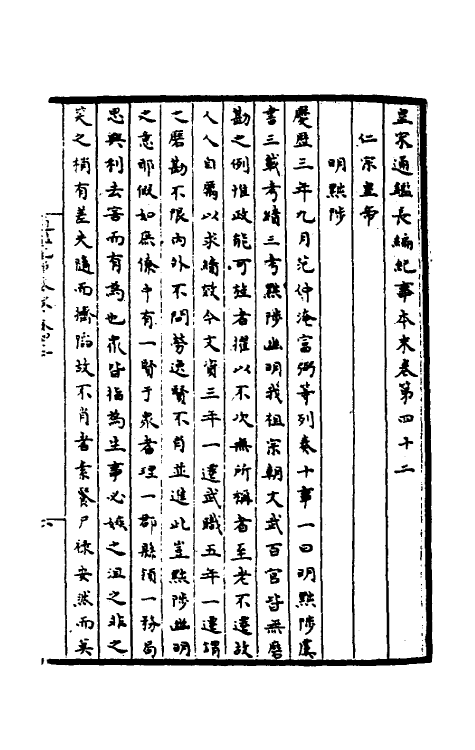 皇宋通鑑長編紀事本末卷第四十二
仁宗皇帝
明黜陟
慶曆三年九月范仲淹富弼等列奏十事一曰明黜陟虞
書三載考績三考黜陟幽明我祖宗朝文武百官皆無磨
勘之例惟政能可旌者擢以不次無所稱者至老不遷故
人人自勵以求績效今文資三年一遷武職五年一遷謂
之磨勘不限內外不問勞逸賢不肖並進此豈黜陟幽明
之意耶假如庶僚中有一賢于衆者理一郡縣領一務局
思興利去害而有為也衆皆指為生事必嫉之沮之非之
笑之稍有差失隨而擠陷故不肖者素餐尸祿安然而莫